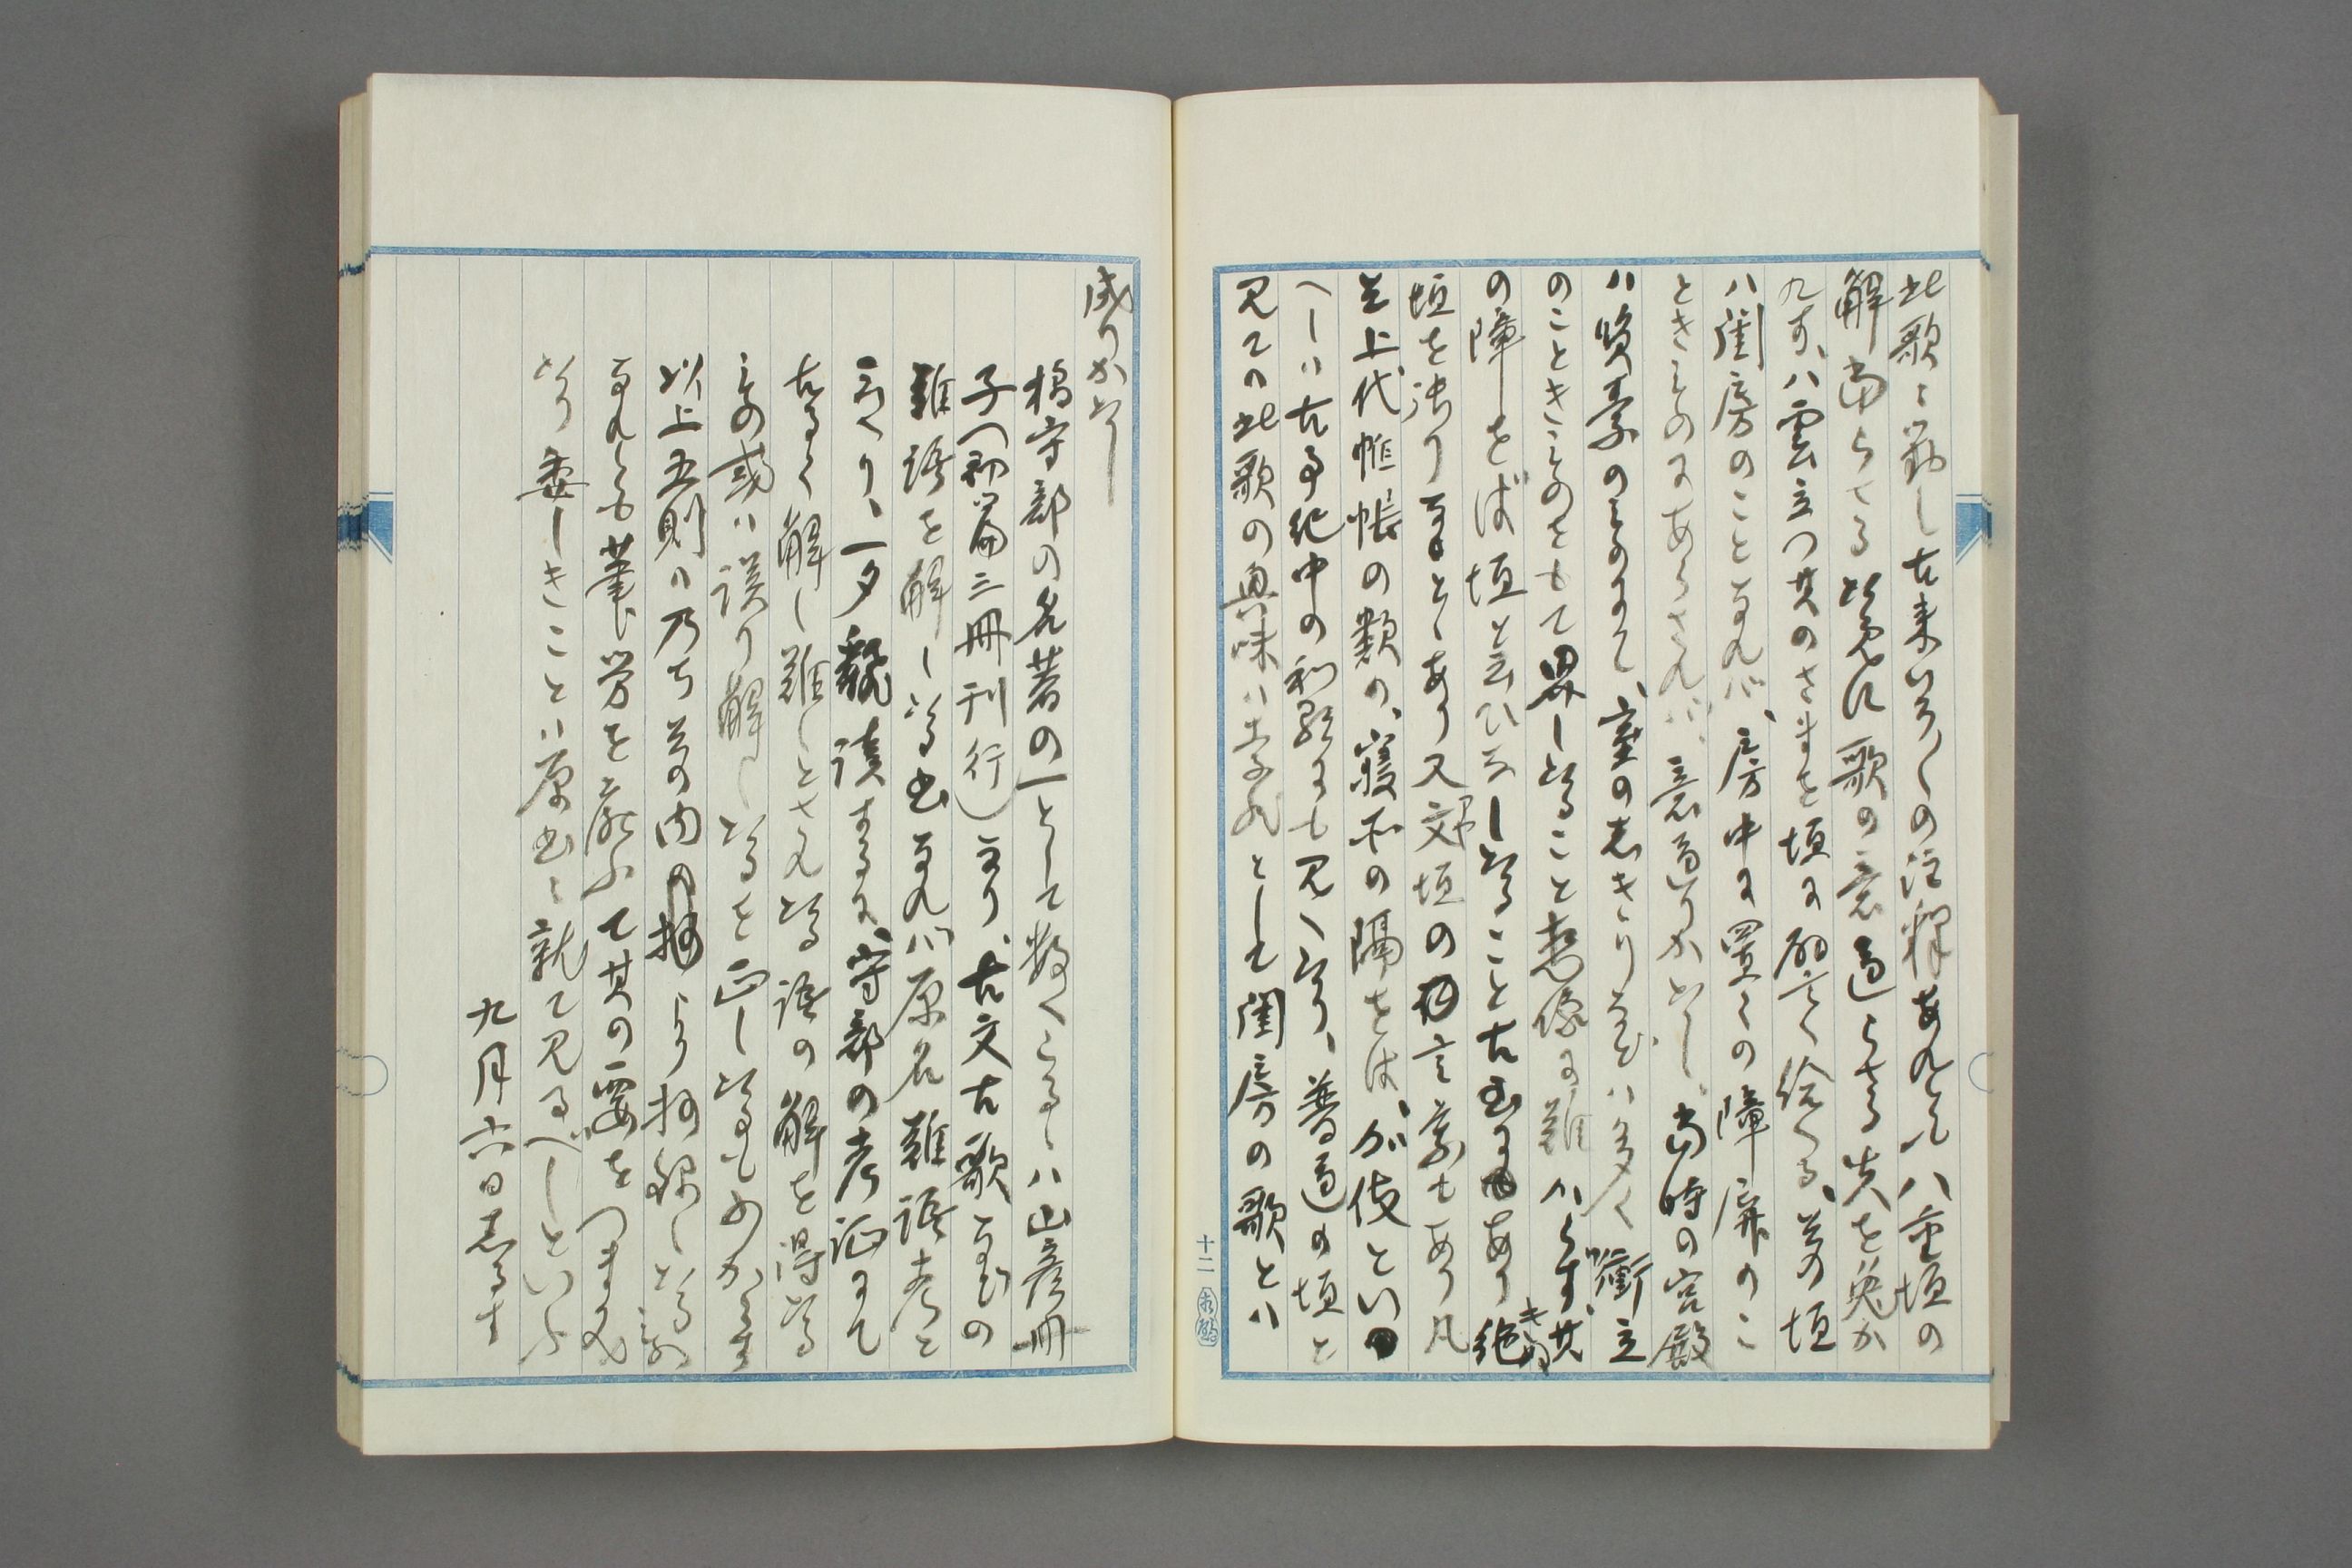 此歌に就し古来いろ〱の注釈あれど八重垣の
解当らざる ゆゑに歌の意通らざる失を免か
れず、八雲立つ其のさまを垣に 給へる、其の垣
ハ閨房のことなれバ、房中に置くの障屏のこ
ときものにあらざれバ意通りがたし、当時の宮殿
ハ質素のものにて、室のしきりなどハ多く衝立
のごときものをもて界したること想像に難からず、其
の障しをば垣と云ひなしたること古書にもあり 絶
垣を決りなどゝあり又 垣の 言葉もあり凡
そ上代帷帳の類の、寝所の隔をば、が伎といひ
へしハ古事記中の和 にも見へたり、普通の垣と
見ての此歌の興味ハ索然として閨房の歌とハ
成りがたし
橘守部の名著の一として数へらるゝハ山彦冊
子(初篇三冊刊行)なり、古文古歌などの
難語を解したる書なれバ原名難語考と
云へり、一夕繙読するに、守部の考証にて
古るく解し難しとされたる語の解を得たる
もの或ハ誤り解したるを正したるも少からず
以上五則ハ乃ち其の内の 抄より抄録したるもの
なれども筆労を厭ふて其の要をつまみ
たり委しきことハ原書に就て見るべしといふ
九月六日しるす
十二